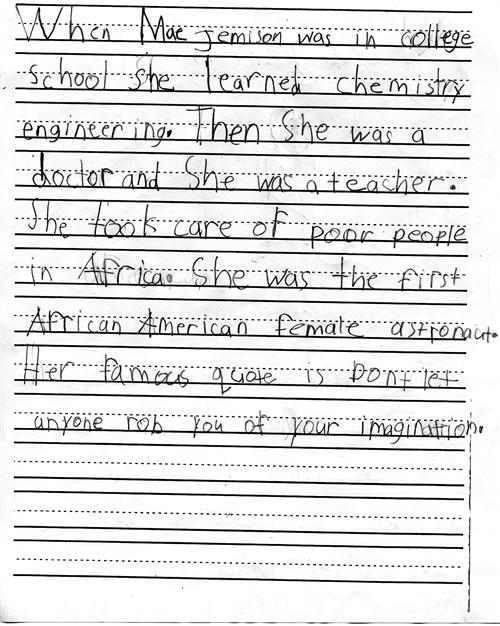 When Mae Jemison was in college
school she learned chemistry
engineering. Then She was a
doctor and She was a teacher.
She took care of poor people
in Africa. She was the first
African American female astronaut.
Her famous quote is Dont let
anyone rob you of your imagination.